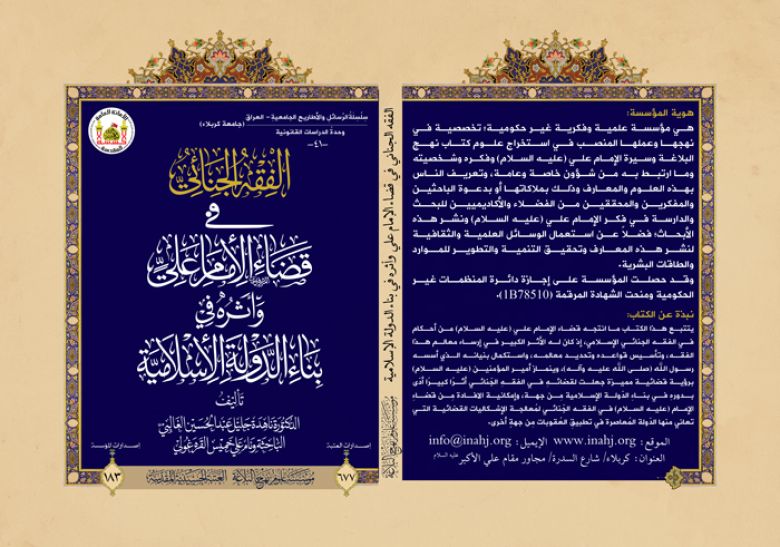 سلسلة الرسائل والأطاريح الجامعية - العراق
(جامعة كربلاء)
وحدة الدراسات القانونية
-٤١-
الفِقْهُ الجَنَائِيُّ
فِي
قَضَاءِ الأِمَامِ عَلِيٍّ
وَأَثَرُهُ فِي
بِنَاءِ الدَّوْلَةِ الأِسْلَامِيَّةِ
تأليف
الدكتورة ناهدة جليل عبد الحسين الغالبي
الباحثة وئام علي خميس القره غولي
إصدارات المؤسسة
١٨٣
إصدارات العتبة
٦٧٧
مؤسسة علوم نهج البلاغة العتبة الحسينية المقدسة
الفقه الجنائي في قضاء الإمام علي وأثره في بناء الدولة الإسلامية
مؤسسة علوم نهج البلاغة
هوية المؤسسة:
هي مؤسسة علمية وفكرية غير حكومية؛ تخصصية في
نهجها وعملها المنصب في استخراج علوم كتاب نهج
البلاغة وسيرة الإمام علي (عليه السلام) وفكره وشخصيته
وما ارتبط به من شؤون خاصة وعامة، وتعريف الناس
بهذه العلوم والمعارف وذلك بملاكاتها أو بدعوة الباحثين
والمفكرين والمحققين من الفضلاء والأكاديميين للبحث
والدراسة في فكر الإمام علي (عليه السلام) ونشر هذه
الأبحاث؛ فضلاً عن استعمال الوسائل العلمية والثقافية
لنشر هذه المعارف وتحقيق التنمية والتطوير للموارد
والطاقات البشرية.
وقد حصلت المؤسسة على إجازة دائرة المنظمات غير
الحكومية ومنحت الشهادة المرقمة (1B78510).
نبذة عن الكتاب:
يتتبع هذا الكتاب ما انتجه قضاء الإمام علي (عليه السلام) من أحكام
في الفقه الجنائي الإسلامي، إذ كان له الأثر الكبير في إرساء معالم هذا
الفقه، وتأسيس قواعده وتحديد معالمه، واستكمال بنيانه الذي أسسه
رسول الله (صلى الله عليه وآله)، وينماز أمير المؤمنين (عليه السلام)
برؤية قضائية مميزة جعلت لقضائهِ في الفقه الجَنائي أثرًا كبيرًا أدى
بدوره في بناء الدولة الإسلامية من جهة، وإمكانية الافادة من قضاء
الإمام (عليه السلام) في الفقه الجَنائي لمُعالجة الإشكاليات القضائية التي
تعاني منها الدولة المُعاصرة في تطبيق العُقوبات من جهةٍ أخرى.
الموقع: www.inahj.org الإيميل: info@inahj.org
العنوان: كربلاء/ شارع السدرة/ مجاور مقام علي الأكبر عليه السلام